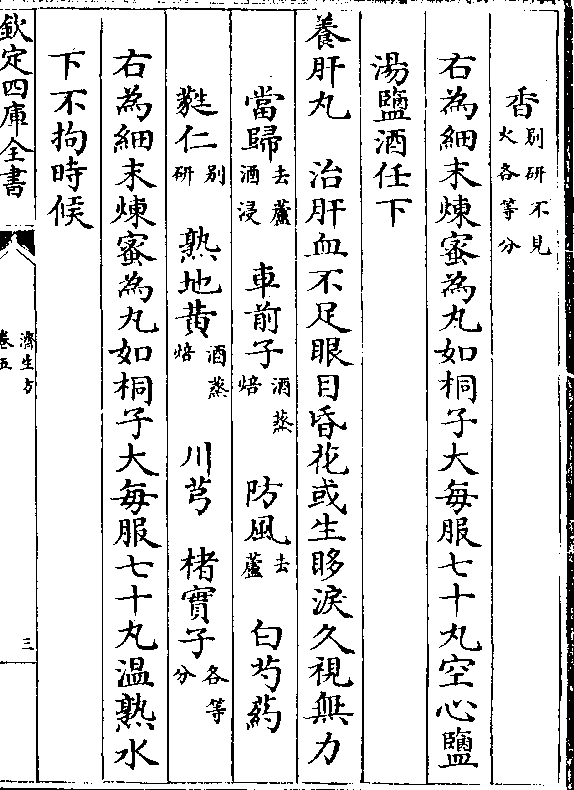 香別研不見火各等分
右為細末煉蜜為丸如桐子大每服七十丸空心鹽
湯鹽酒任下
養肝丸 治肝血不足眼目昏花或生眵淚久視無力
當歸去蘆酒浸 車前子酒蒸焙 防風去蘆 白芍藥
蕤仁別研 熟地黄酒蒸焙 川芎 楮實子各等分
右為細末煉蜜為丸如桐子大每服七十丸温熟水
下不拘時候
欽定四庫全書
濟生方
卷五
三